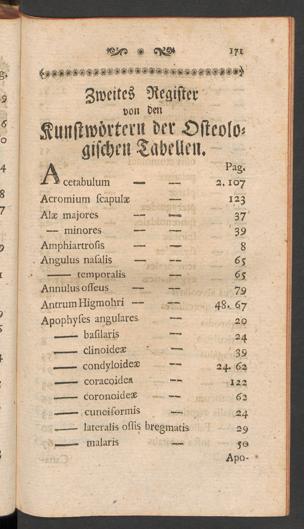 171
Zweites Register
von den
Kunstwörtern der Osteolo-
gischen Tabellen.
Pag.
Acetabulum — — 2. 107
Acromium scapulæ — 123
Alæ majores — — 37
— minores — — 39
Amphiartrosis — 8
Angulus nasalis — — 65
— temporalis — 65
Annulus osseus — — 79
Antrum Higmohri — — 48. 67
Apophyses angulares — 20
— basilaris — 24
— clinoideæ — 39
— condyloideæ — 24. 62
— coracoidea — 122
— coronoideæ — 62
— cuneiformis — 24
— lateralis ossis bregmatis 29
— malaris — 50
Apo-